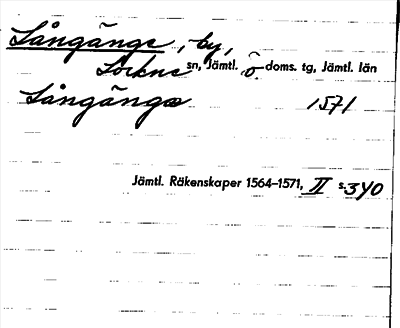 Långänge, by,
Lockne sn, Jämtl. ö. doms. tg, Jämtl. län
Långänge 1571
Jämtl. Räkenskaper 1564–1571, II s. 340